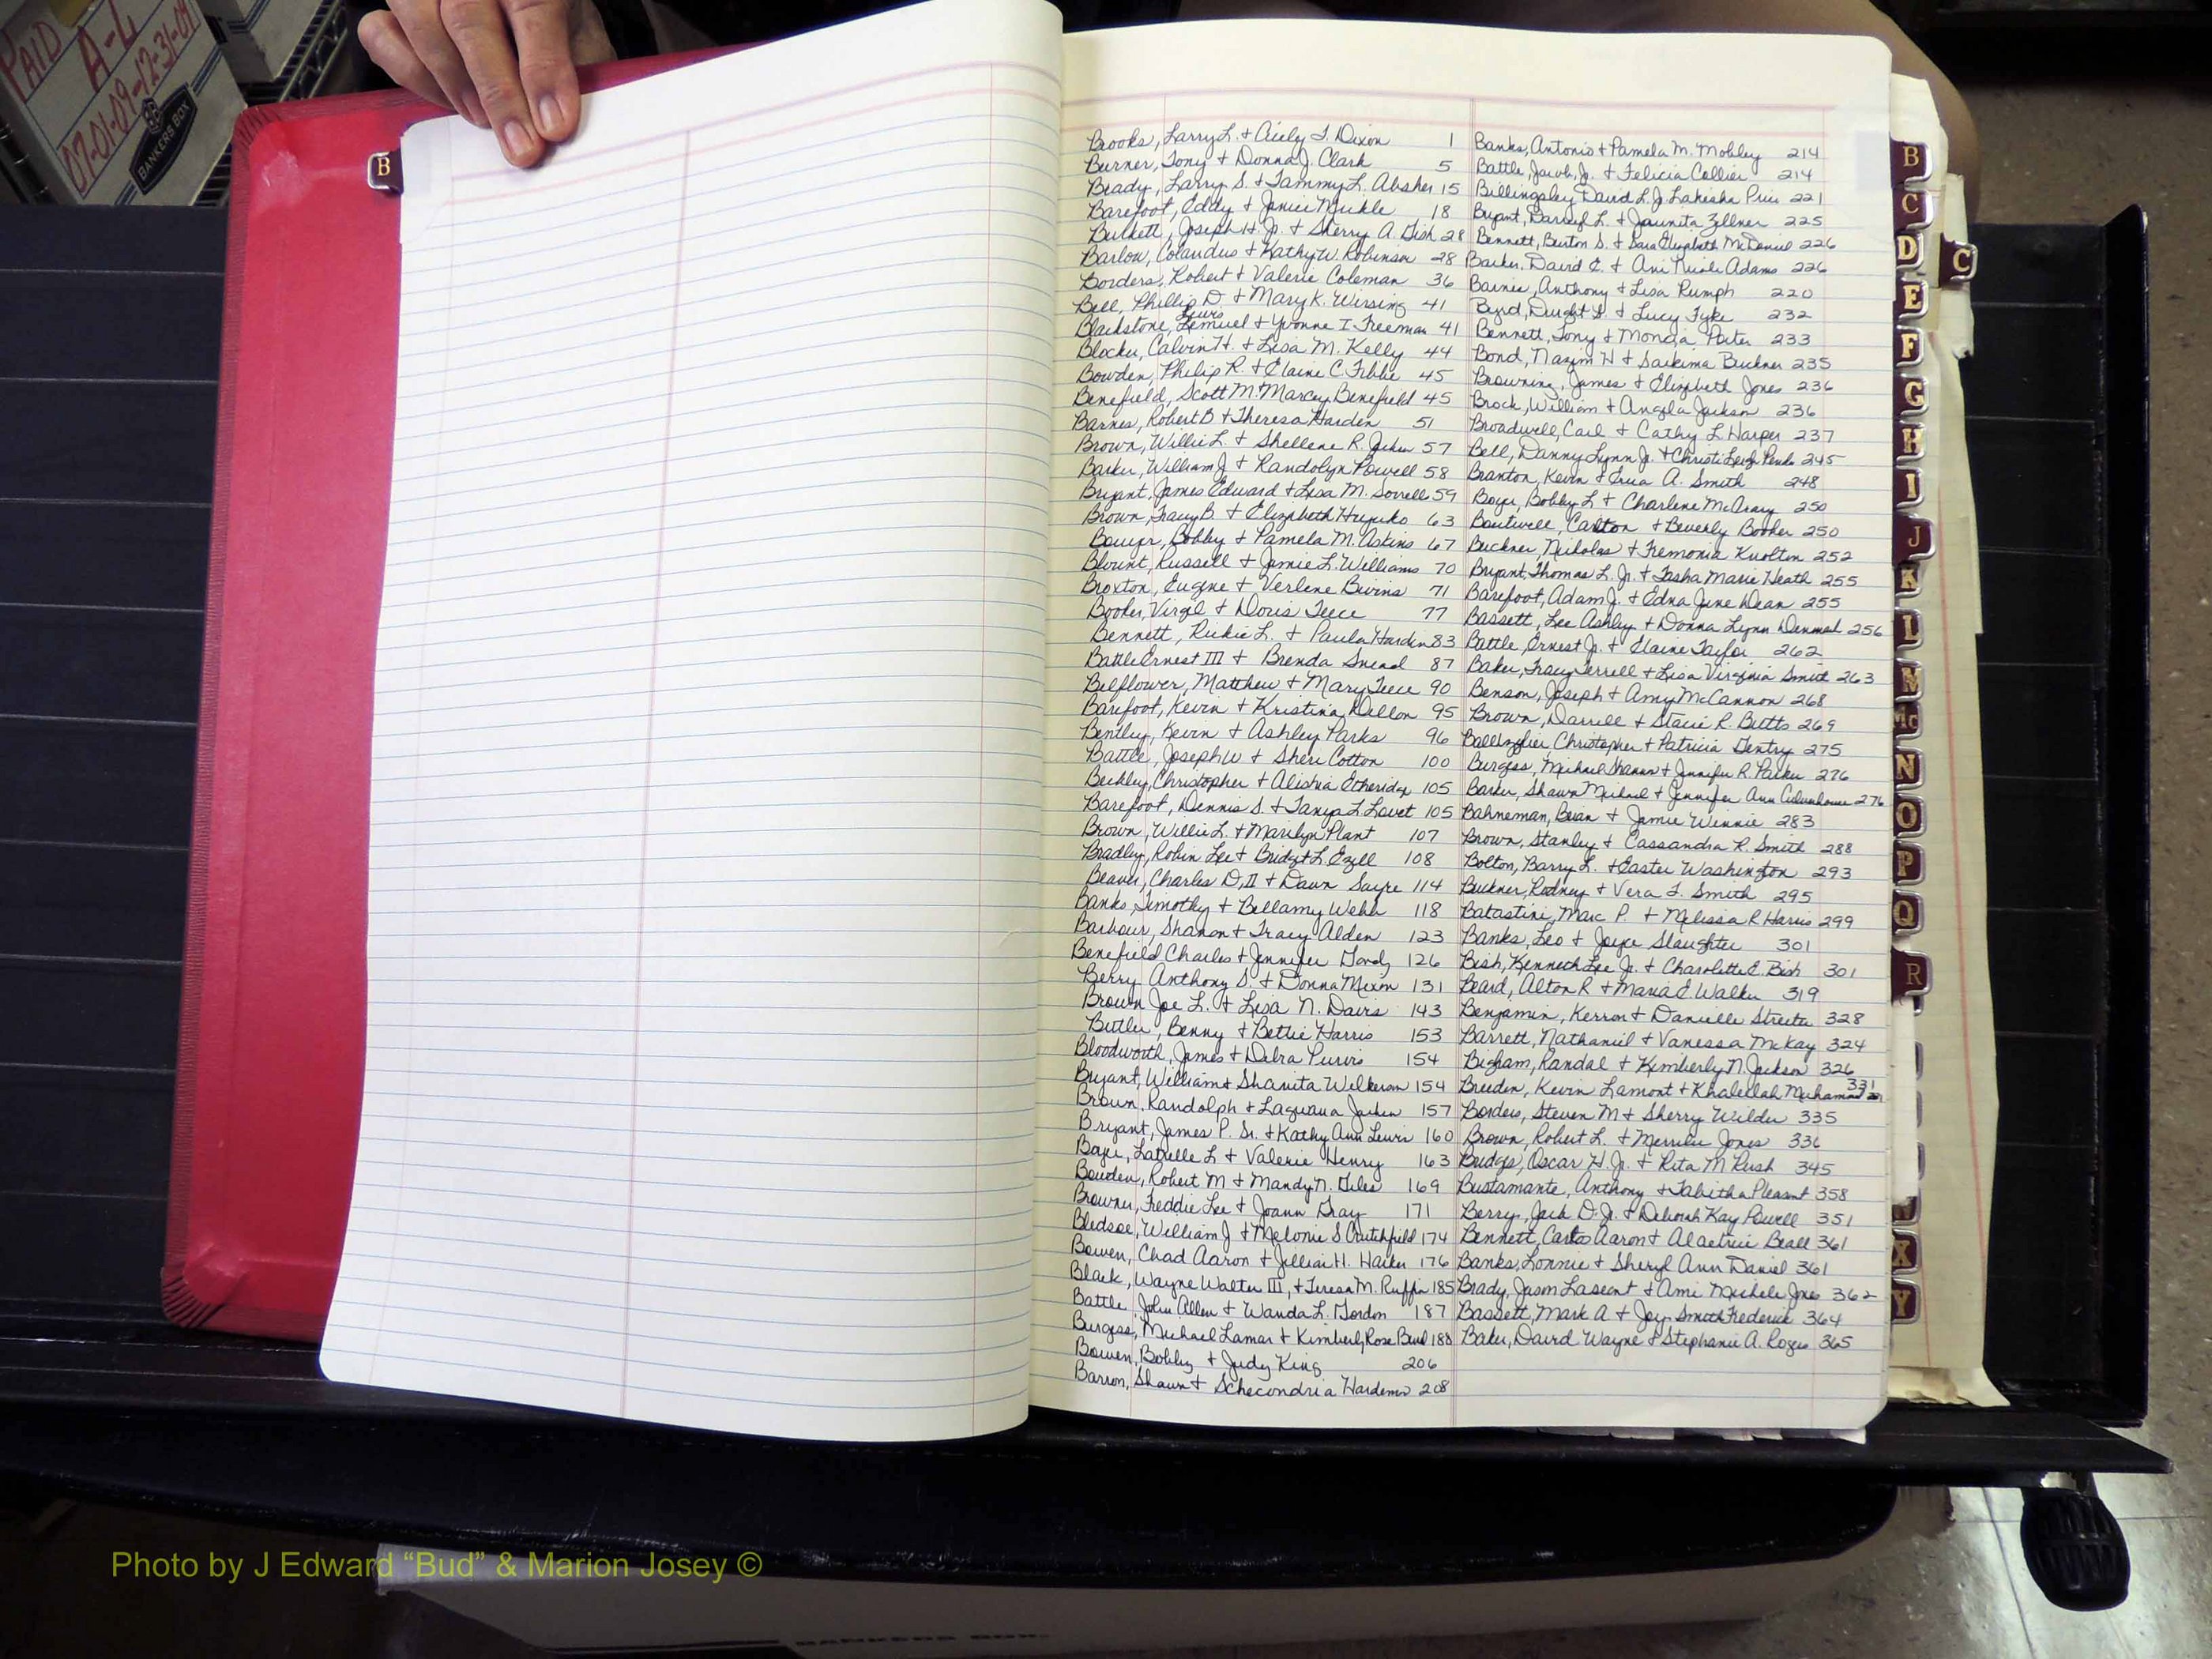 PAID
A-L
07-01-09-12-31-09
BANKERS BOX
B
Brooks, Larry L. + Cicely D. Dixon 1
Burner, Tony + Donna J. Clark 5
Brady, Larry S. + Tammy L. Absher 15
Barefoot, Eddy + Janice Mickle 18
Burkett, Joseph H. Jr. + Sherry A. Gish 28
Barlow, Colandus + Kathy W. Robinson 28
Borders, Robert + Valerie Coleman 36
Bell, Phillip D + Mary K. Wirsing 41
Lewis
Blackstone, Lemuel + Yvonne I Freeman 41
Blocker, Calvin H. + Lisa M. Kelly 44
Bowden, Philip R. + Elaine C. Tibbie 45
Benefield, Scott M. + Marcey Benefield 45
Barnes, Robert B + Theresa Harden 51
Brown, Willie L. + Shellene R. 57
Barker, William J + Randolyn Powell 58
Bryant, James Edward + Lisa M. Sorrell 59
Brown, Tracy B. + Elizabeth 63
Bowyer, Bobby + Pamela M. Askins 67
Blount, Russell + Jamie L. Williams 70
Broxton, Eugene + Verlene Bivins 71
Booker, Virgil + Doris Teece 77
Bennett, Rickie L. + Paula Hardin 83
Battle Ernest III + Brenda Snead 87
Belflower, Matthew + Mary Teece 90
Barefoot, Kevin + Kristina Dillon 95
Bentley, Kevin + Ashley Parks 96
Battle, Joseph W + Sheri Cotton 100
Beckley, Christopher + Alishia Etheridge 105
Barefoot, Dennis S. + Tanya L Lovet 105
Brown, Willie L. + Marilyn Plant 107
Bradley, Robin Lee + Bridget L. Ezell 108
Beaver, Charles D, II + Dawn Sayre 114
Banks, Timothy + Bellamy Webb 118
Barbour, Shanon + Tracy Alden 123
Benefield Charles + Jennifer Gordy 126
Berry Anthony S. + Donna Mixon 131
Brown Joe L. + Lisa N. Davis 143
Butler, Benny + Bettie Harris 153
Bloodworth, James + Debra Purvis 154
Bryant, William + Shanita Wilkerson 154
Brown, Randolph + Laguana 157
Bryant, James P. Sr. + Kathy Ann Lewis 160
Boyer, Latrelle L + Valerie Henry 163
Bowden, Robert M + Mandy N. Giles 169
Browner, Freddie Lee + Joann Gray 171
Bledsoe, William J + Melonie S Crutchfield 174
Bowen, Chad Aaron + Jillian H. Harker 176
Black, Wayne Walter III, + Teresa M. Ruffin 185
Battle, John Allen + Wanda L. Gordon 187
Burgess, Michael Lamar + Kimberly Rose 188
Bowen, Bobby + Judy King 206
Barron, Shaun + Schecondria Hardemon 208
Banks, Antonio + Pamela M. Mobley 214
Battle, Jacob, Jr. + Felicia Collier 214
Billingsley David L. Jr. Lakisha Price 221
Bryant, Darryl L. + Jaunita Zellner 225
Bennett, Burton S. + Sara Elizabeth McDaniel 226
Barker, David C. + Ani Nicole Adams 226
Baines, Anthony + Lisa Rumph 220
Byrd, Dwight L. + Lucy Fyke 232
Bennett, Tony + Monda Porter 233
Bond, Nazim H + Saikima Buckner 235
Browning, James + Elizabeth Jones 236
Brock, William + Angela Jackson 236
Broadwell, Carl + Cathy L. Harper 237
Bell, Danny Lynn Jr. + Christi Leigh 245
Branton, Kevin + Erica A. Smith 248
Boyer, Bobby L + Charlene McCrary 250
Boutwell, Carlton + Beverly Booker 250
Buckner, Nicholas + Tremonia Knolton 252
Bryant, Thomas L. Jr. + Tasha Marie Heath 255
Barefoot, Adam J. + Edna June Dean 255
Bassett, Lee Ashley + Donna Lynn Denmark 256
Battle, Ernest Jr. + Elaine Taylor 262
Baker, Tracy Terrell + Lisa Virginia Smith 263
Benson, Joseph + Amy McCannon 268
Brown, Darrell + Stacie R. Butts 269
Ballzglier, Christopher + Patricia Gentry 275
Burgess, Michael Shannon + Jennifer R. Parker 276
Barker, Shawn Michael + Jennifer Ann 276
Bahneman, Brian + Jamie Winnie 283
Brown, Stanley + Cassandra R. Smith 288
Bolton, Barry L. + Easter Washington 293
Buckner, Rodney + Vera J. Smith 295
Batastini, Marc P. + Melissa R Harris 299
Banks, Leo + Joyce Slaughter 301
Bish, Kenneth Lee Jr. + Charolette E. Bish 301
Beard, Alton R + Maria E. Walker 319
Benjamin, Kerron + Danielle Streeter 328
Barrett, Nathaniel + Vanessa McKay 324
Bigham, Randal + Kimberly N. Jackson 326
Breeden, Kevin Lamont + Khalellah Muhammad 331
Borders, Steven M + Sherry Wilder 335
Brown, Robert L. + Merrilee Jones 336
Bridges, Oscar H. Jr. + Rita M Rush 345
Bustamante, Anthony + Tabitha Pleasant 358
Berry, Jack D. Jr. + Deborah Kay Powell 351
Bennett, Carlos Aaron + Alaetric Beall 361
Banks, Lonnie + Sheryl Ann Daniel 361
Brady, Jason Lascent + Ami Michele Jones 362
Bassett, Mark A + Joy Smith Frederick 364
Baker, David Wayne + Stephanie A. Rogers 365
B
C
D
C
E
F
G
H
I
J
K
L
M
Mc
N
O
P
Q
R
X
Y
Photo by J Edward “Bud” & Marion Josey ©